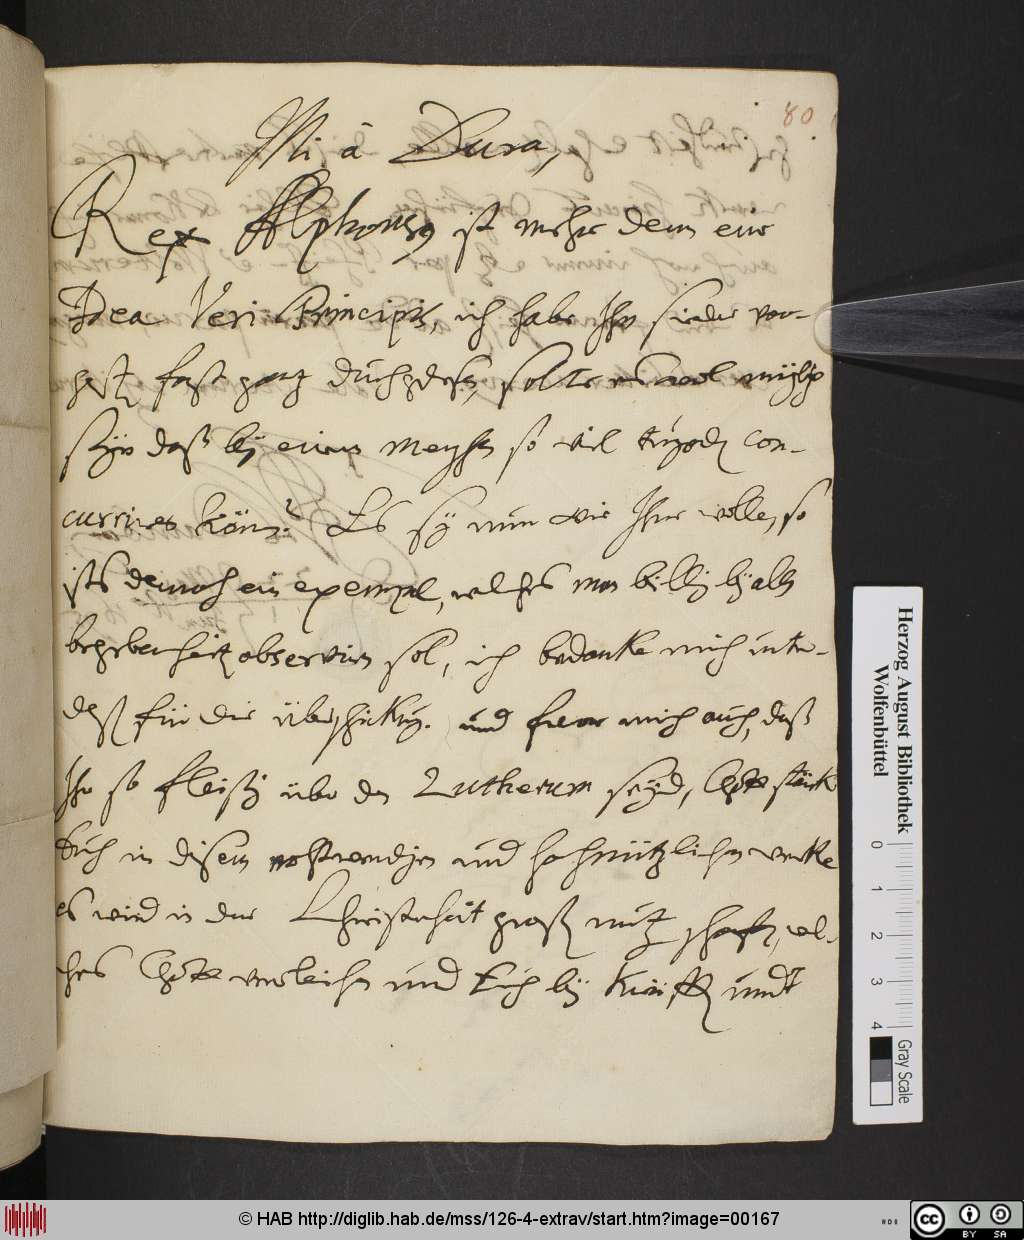 80
Mi à Dura,
Rex Alphonsus ist mehr denn eine
Idea Veri Principis, ich habe Ihn sieder vor-
gest fast gantz durchgelesen, solte es wol müglich
seyn daß bey einem Menschen so viel tugenden con-
curriren können? Es sey nun wie Ihm wolle, so
ists dennoch ein exempel, welches man billig bey allen
begebenheiten observiren sol, ich bedanke mich unter-
deß für die überschickung. und freue mich auch, daß
Ihr so fleißig über den Lutherum seyd, Gott stärke
Euch in diesem nohtwendigen und hochnützlichen werke
es wird in der Christenheit großen nutz schaffen, wel-
ches Gott verleihe und Euch bey Kräfften undt
Herzog August Bibliothek
Wolfenbüttel
0 1 2 3 4
Gray Scale
© HAB http://diglib.hab.de/mss/126-4-extrav/start.htm?image=00167
cc BY SA